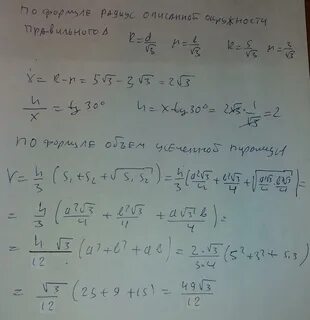 по формуле радиус описанной окружности
правильного Δ R = a/√3 r = b/√3 R = 5/√3 r = 3/√3
x = R - r = 5√3 - 3√3 = 2√3
h/x = tg 30° h = x tg 30° = 2√3 · 1/√3 = 2
по формуле объем усеченной пирамиды
V = h/3 (S₁ + S₂ + √S₁S₂) = h/3 (a²√3/4 + b²√3/4 + √(a²√3/4 · b²√3/4)) =
= h/3 (a²√3/4 + b²√3/4 + a√3b/4) =
= h√3/12 · (a² + b² + ab) = 2·√3/3·4 (5² + 3² + 5·3)
= √3/12 (25 + 9 + 15) = 49√3/12